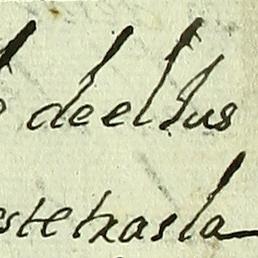 de el sus
estetxasla